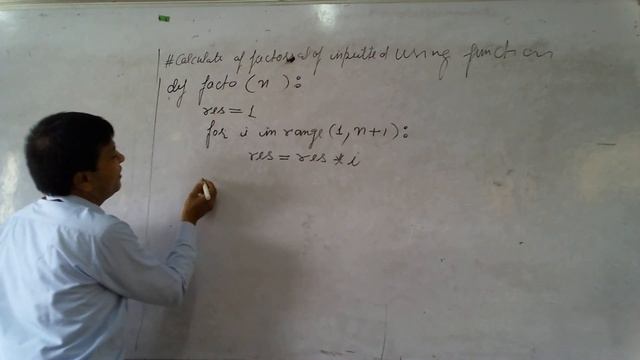 # Calculate of factorial of inputted using function
def facto (n):
res = 1
for i in range (1, n+1):
res = res * i